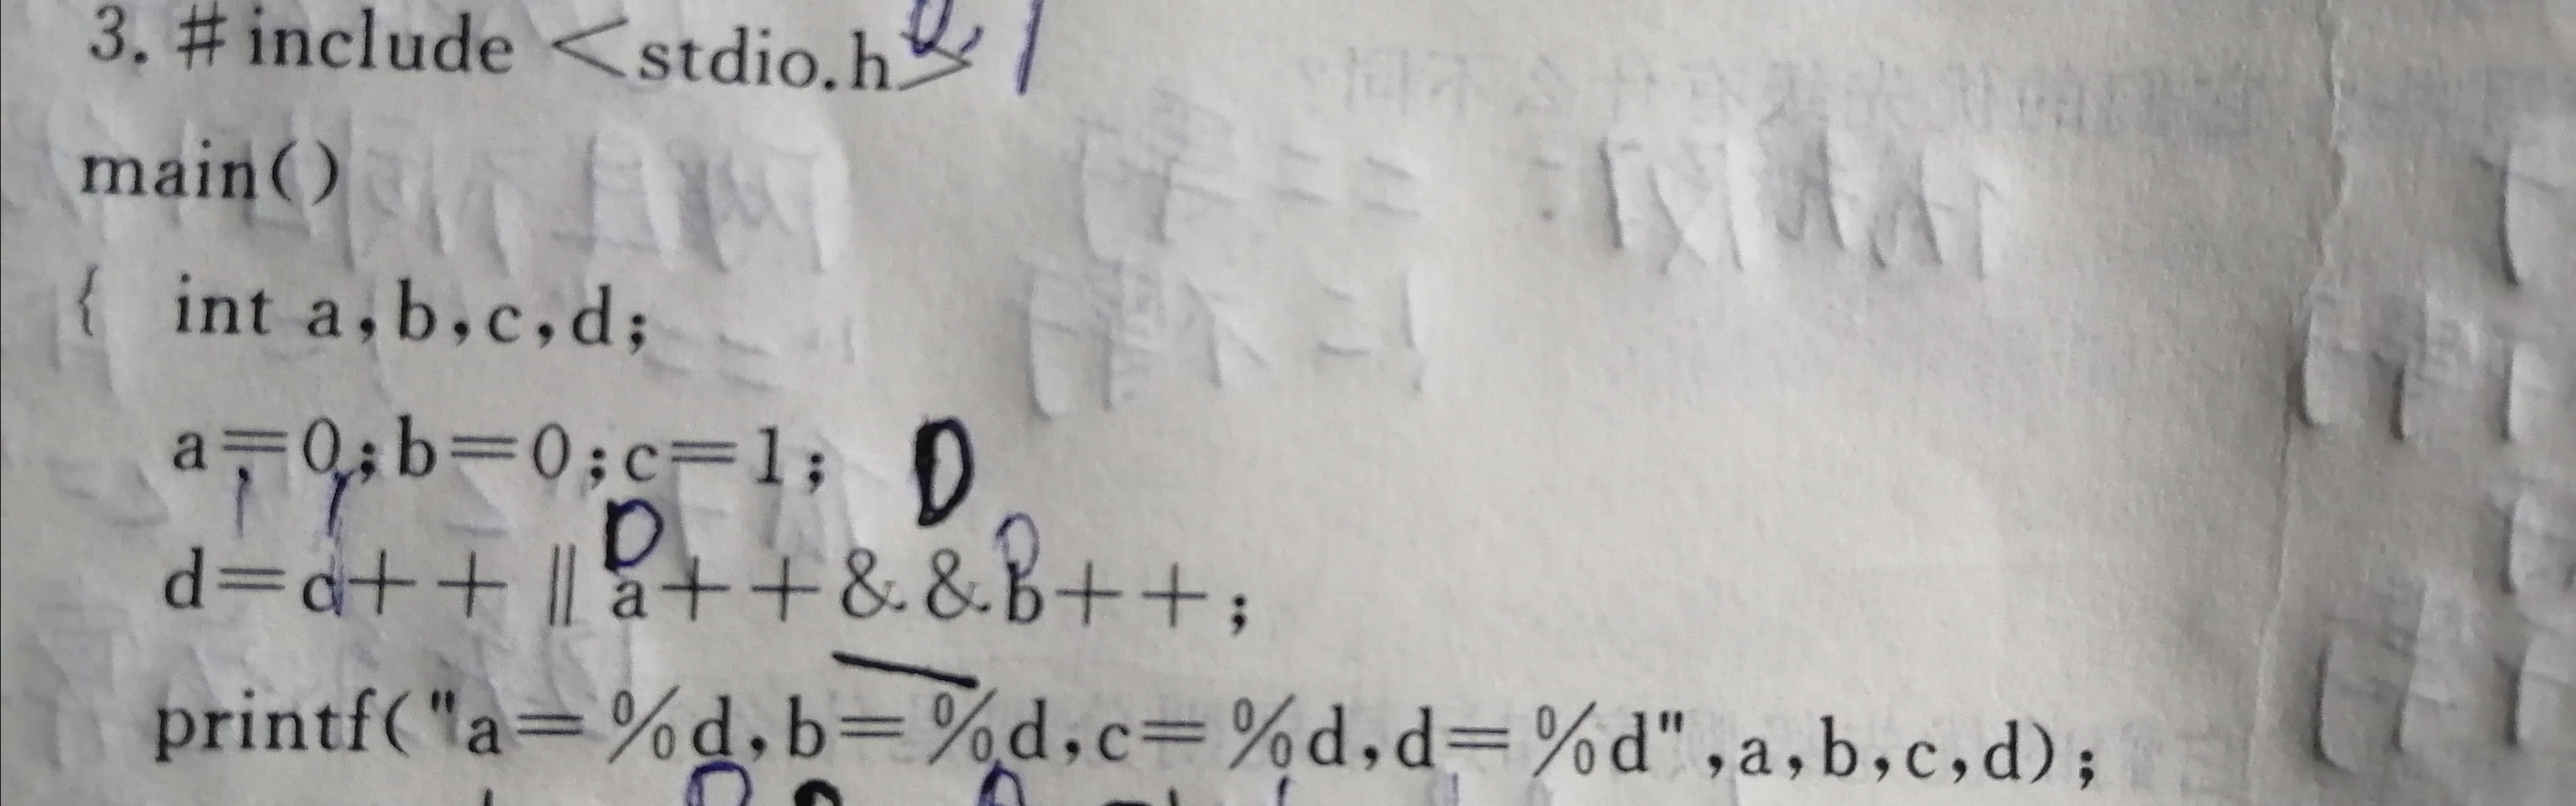 3. #include <stdio.h>
main()
{ int a,b,c,d;
a=0;b=0;c=1;
d=c++||a++&&b++;
printf("a=%d,b=%d,c=%d,d=%d",a,b,c,d);